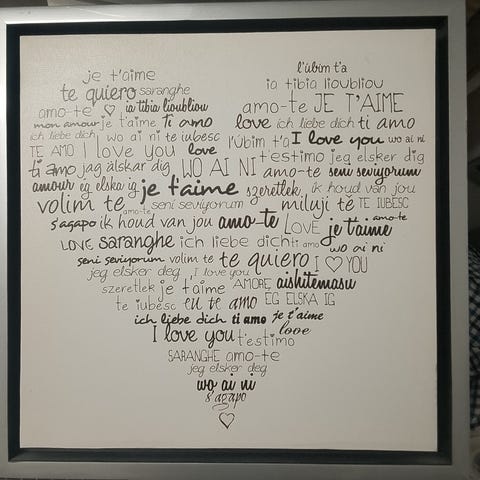 je t'aime l'ubim t'a
te quiero saranghe ia tibia lioubliou
amo-te ♡ ia tibia lioubliou amo-te JE T'AIME
mon amour je t'aime ti amo love ich liebe dich ti amo
ich liebe dich wo ai ni te iubesc l'übim t'a I love you wo ai ni
TE AMO I love you love t'estimo jeg elsker dig
ti amo jag älskar dig WO AI NI amo-te seni seviyorum
amour eg elska ig je t'aime szeretlek ik houd van jou
volim te amo-te seni seviyorum miluji tě TE IUBESC
s'agapo ik houd van jou amo-te LOVE je t'aime amo-te
LOVE saranghe ich liebe dich ti amo wo ai ni
seni seviyorum volim te te quiero I ♡ YOU
jeg elsker deg I love you AMORE aishitemasu
szeretlek je t'aime EG ELSKA IG
te iubesc eu te amo
ich liebe dich ti amo je t'aime
I love you t'estimo love
SARANGHE amo-te
jeg elsker deg
wo ai ni
s'agapo
♡